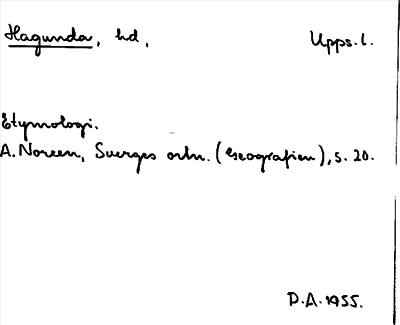 Hagunda, hd, Upps. l.
Etymologi.
A. Noreen, Sverges ortn. (Geografien), s. 20.
D.A. 1955.